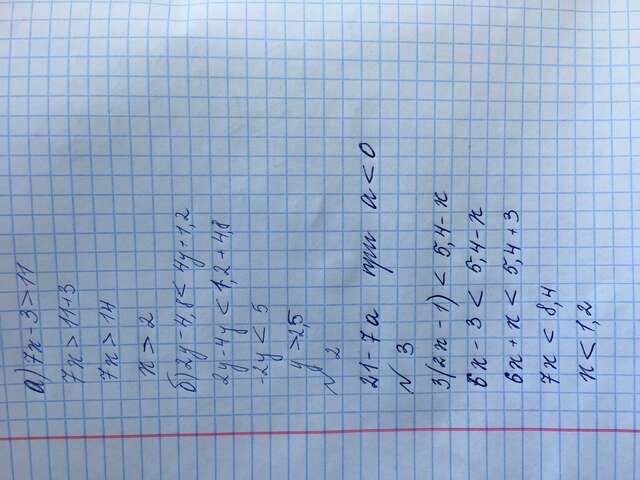 а) 7x - 3 > 11
7x > 11+3
7x > 14
x > 2
б) 2y - 4,8 < 4y + 1,2
2y - 4y < 1,2 + 4,8
-2y < 5
y > 2,5
№ 2
21 - 7a при a < 0
№ 3
3(2x - 1) < 5,4 - x
6x - 3 < 5,4 - x
6x + x < 5,4 + 3
7x < 8,4
x < 1,2